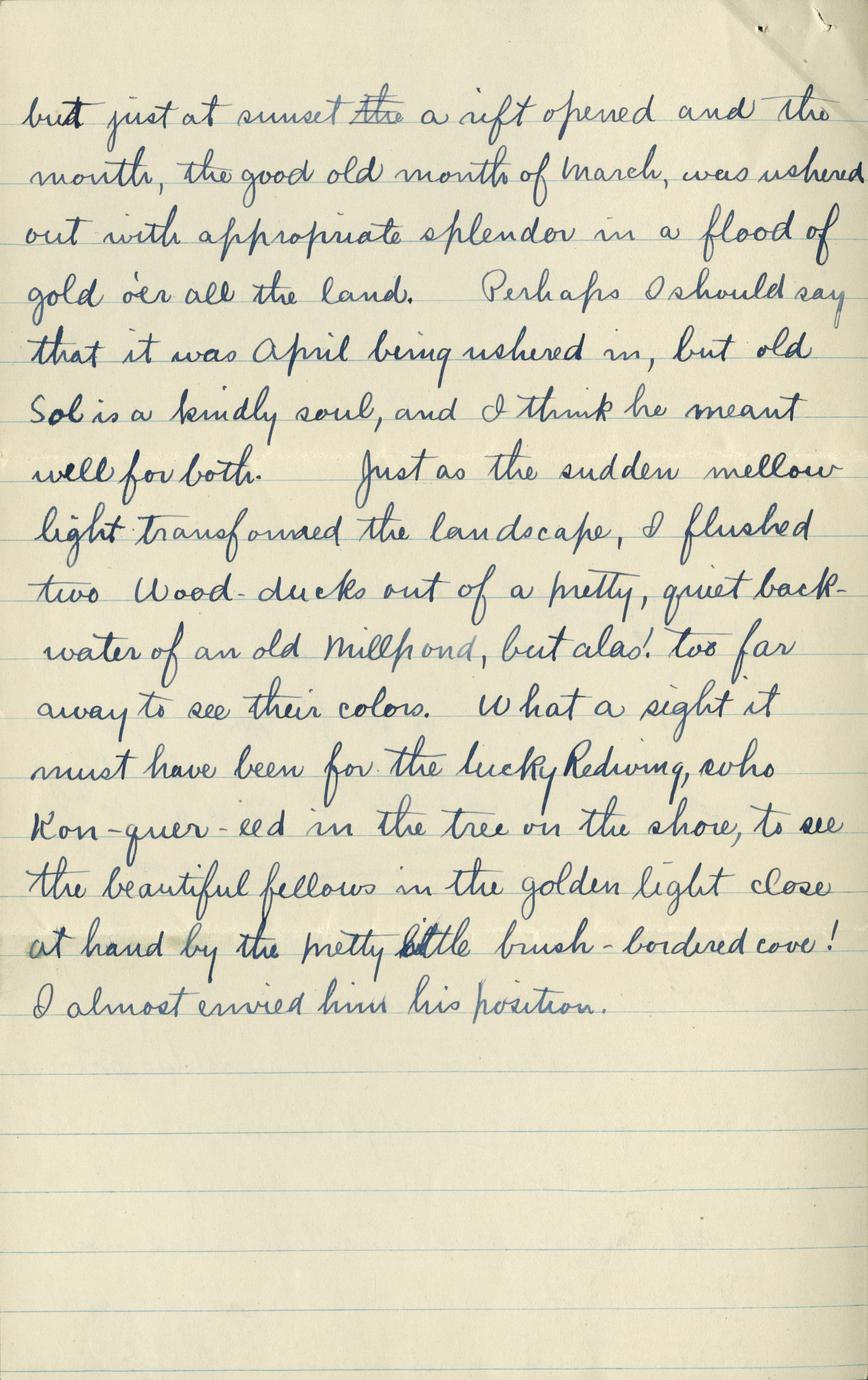 but just at sunset the a rift opened and the
month, the good old month of March, was ushered
out with appropriate splendor in a flood of
gold o'er all the land. Perhaps I should say
that it was April being ushered in, but old
Sol is a kindly soul, and I think he meant
well for both. Just as the sudden mellow
light transformed the landscape, I flushed
two Wood-ducks out of a pretty, quiet back-
water of an old Millpond, but alas! too far
away to see their colors. What a sight it
must have been for the lucky Redwing, who
Kon-quer-eed in the tree on the shore, to see
the beautiful fellows in the golden light close
at hand by the pretty little brush-bordered cove!
I almost envied him his position.